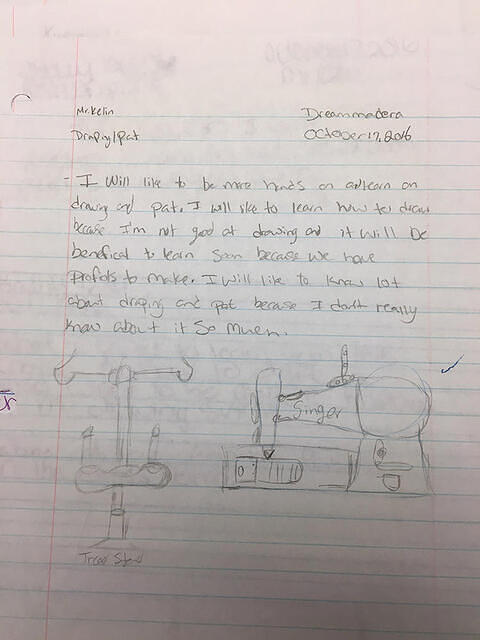 Mr. Kelin
Dreammadera
Draping/pat
October 17, 2016
- I will like to be more hands on and learn on
drawing and pat. I will like to learn how to draw
because I'm not good at drawing and it will be
benefical to learn soon because we have
profols to make. I will like to know lot
about draping and pat because I don't really
know about it so much.
Singer
Tread Stand